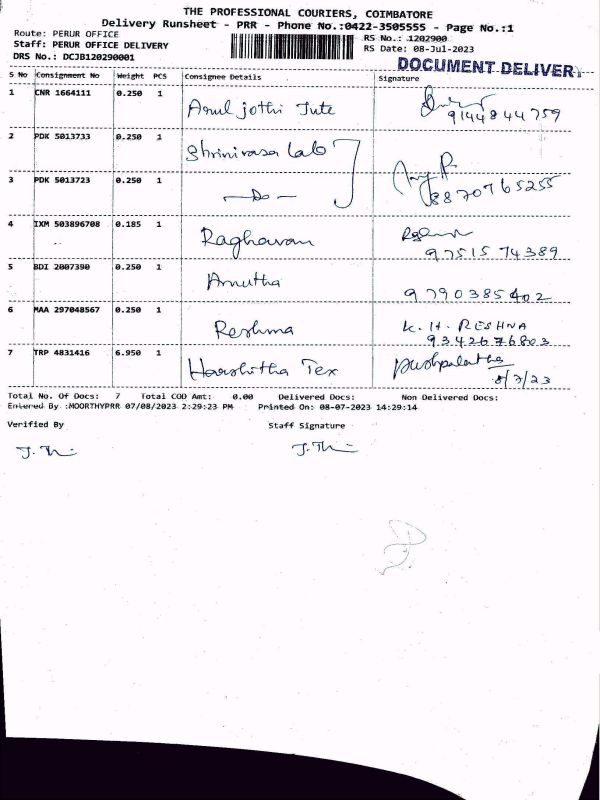 THE PROFESSIONAL COURIERS, COIMBATORE
Delivery Runsheet - PRR - Phone No.:0422-3505555 - Page No.:1
Route: PERUR OFFICE
RS No.: 1202900
Staff: PERUR OFFICE DELIVERY
RS Date: 08-Jul-2023
DRS No.: DCJB120290001
DOCUMENT DELIVERY
S No Consignment No Weight PCS Consignee Details Signature
1 CNR 1664111 0.250 1 Arul jothi Jute
9144844759
2 PDK 5013733 0.250 1 Shrinivasa Lab
3 PDK 5013723 0.250 1 — Do — 8870765255
4 IXM 503896708 0.185 1 Raghavan
97515 74389
5 BDI 2007390 0.250 1 Amutha
9790385402
6 MAA 297048567 0.250 1 Reshma K. H. RESHNA
9342676803
7 TRP 4831416 6.950 1 Harshitha Tex Pushpalatha
8/7/23
Total No. Of Docs: 7 Total COD Amt: 0.00 Delivered Docs: Non Delivered Docs:
Entered By :MOORTHYPRR 07/08/2023 2:29:23 PM Printed On: 08-07-2023 14:29:14
Verified By Staff Signature